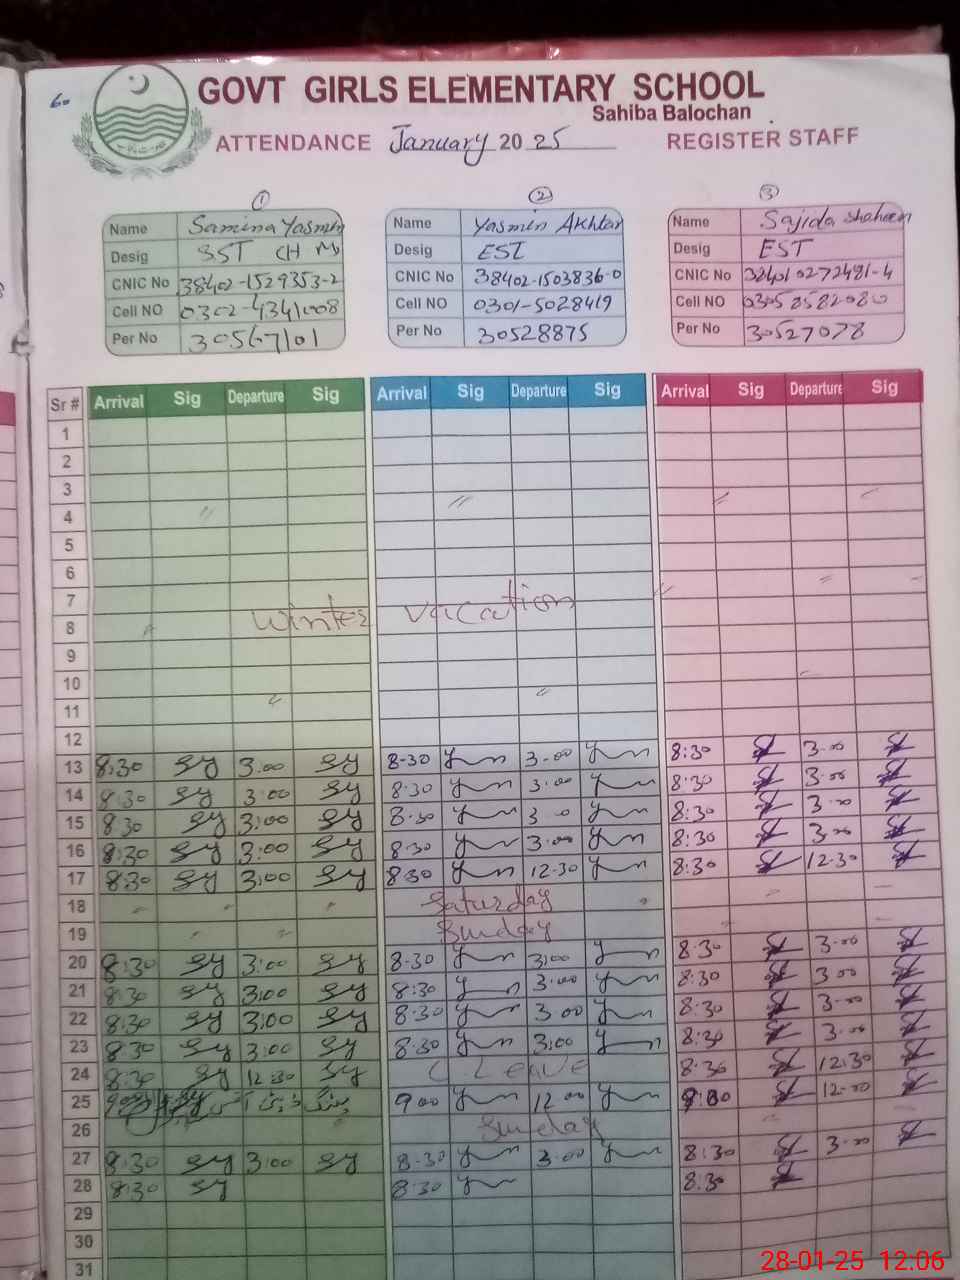 60
GOVT GIRLS ELEMENTARY SCHOOL
Sahiba Balochan
ATTENDANCE January 2025 REGISTER STAFF
① ② ③
Name Samina Yasmin Name Yasmin Akhtar Name Sajida Shaheen
Desig SST Desig EST Desig EST
CNIC No 38402-1529353-2 CNIC No 38402-1503836-0 CNIC No
Cell NO 0302-4341008 Cell NO 0301-5028419 Cell NO
Per No 30567101 Per No 30528875 Per No 30527078
Sr # Arrival Sig Departure Sig Arrival Sig Departure Sig Arrival Sig Departure Sig
1
2
3
4
5
6
7
Winter vacation
8
9
10
11
12
13 8:30 sy 3:00 sy 8-30 3-00 8:30 3-00
14 8:30 sy 3:00 sy 8-30 3:00 8:30 3-00
15 8:30 sy 3:00 sy 8-30 3-0 8:30 3-00
16 8:30 sy 3:00 sy 8:30 3-00 8:30 3-00
17 8:30 sy 3:00 sy 8:30 12-30 8:30 12-30
18 Saturday
19 Sunday
20 8:30 sy 3:00 sy 8-30 3:00 8-30 3-00
21 8:30 sy 3:00 sy 8:30 3-00 8:30 3-00
22 8:30 sy 3:00 sy 8-30 3-00 8:30 3-00
23 8:30 sy 3:00 sy 8:30 3:00 8:30 3-00
24 8:30 sy 12:30 sy C Leave 8:30 12:30
25 9 00 12 00 12-00
26 Sunday
27 8:30 sy 3:00 sy 8-30 3-00 8:30 3-00
28 8:30 sy 8:30 8:30
29
30
31
28-01-25 12:06